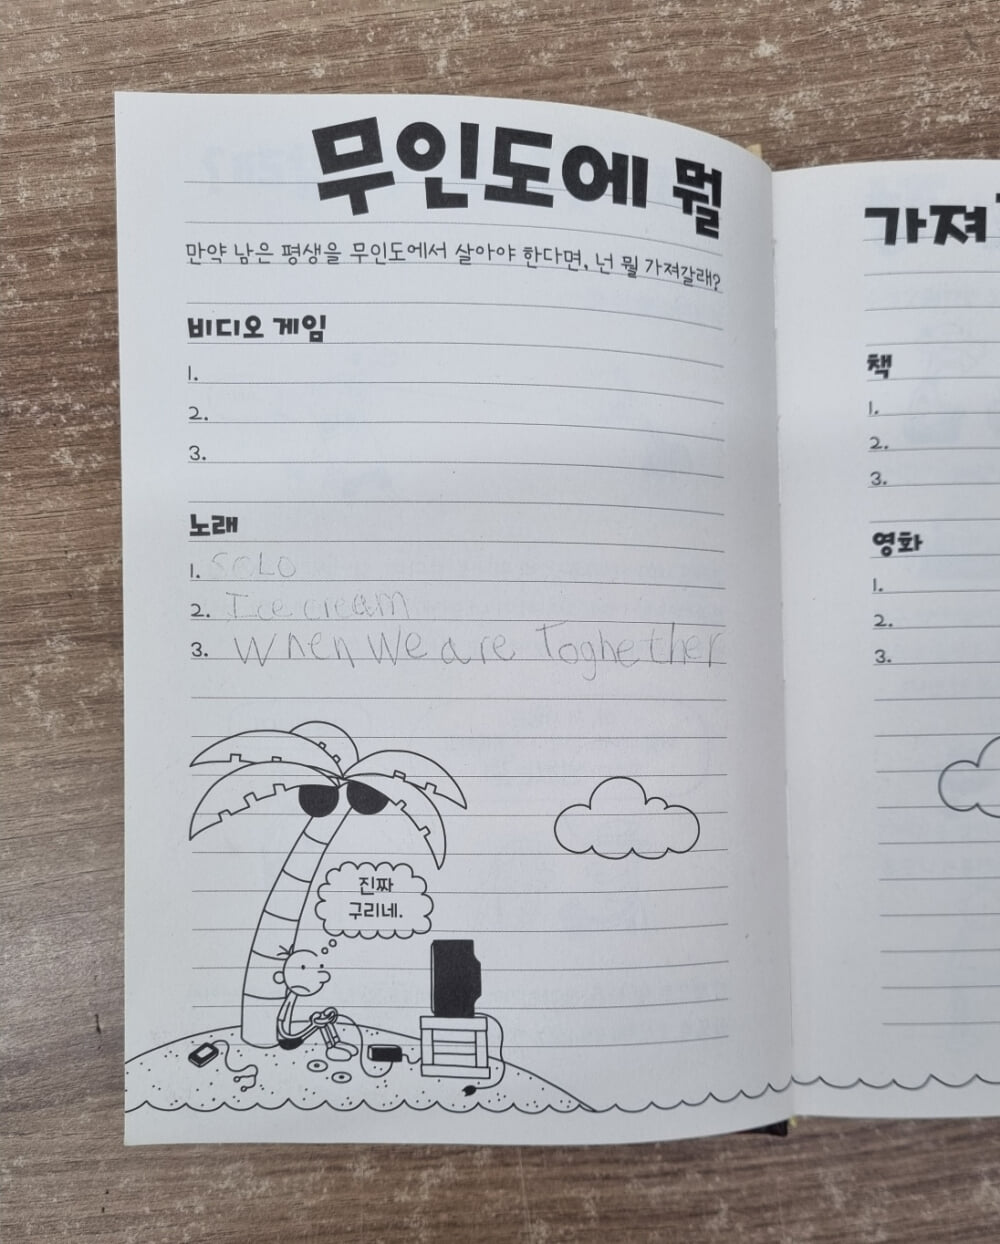 무인도에 뭘
만약 남은 평생을 무인도에서 살아야 한다면, 넌 뭘 가져갈래?
비디오 게임
1.
2.
3.
노래
1. SOLO
2. Ice cream
3. When We are Toghether
진짜
구리네.
가져
책
1.
2.
3.
영화
1.
2.
3.